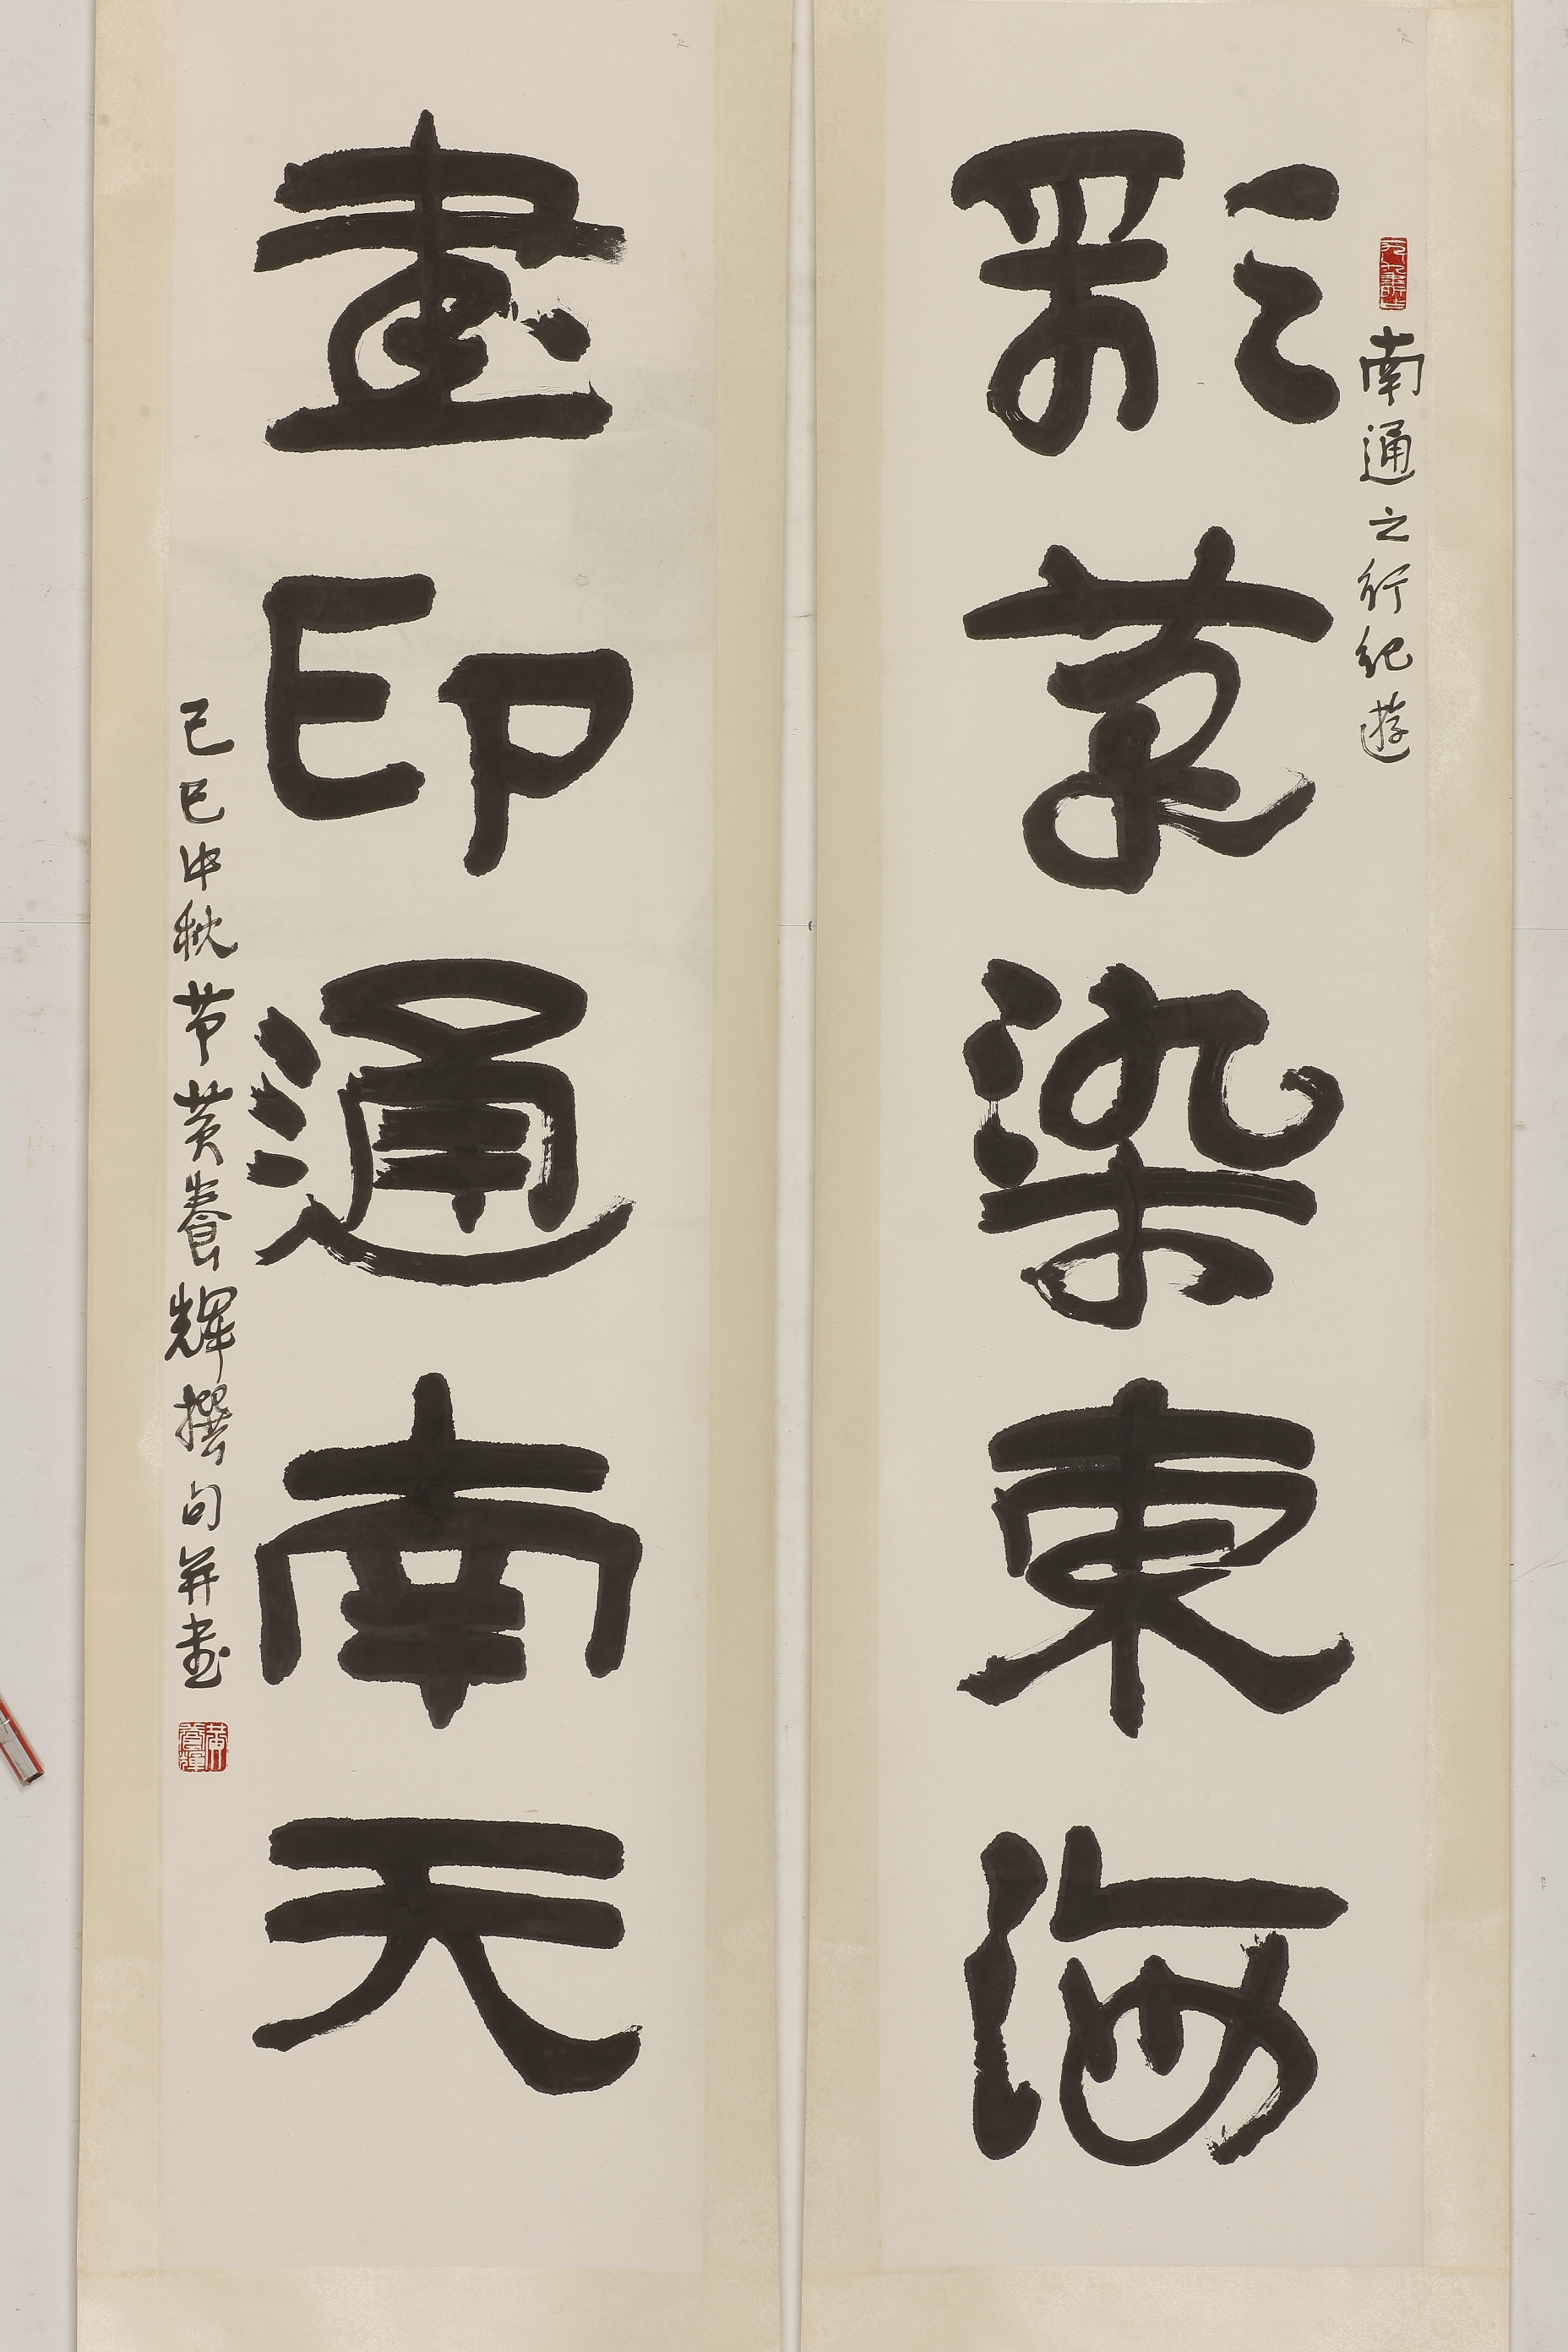 南通之行纪遊
彩染東海
書印通南天
己巳中秋节黄養輝撰句并書
黄養輝